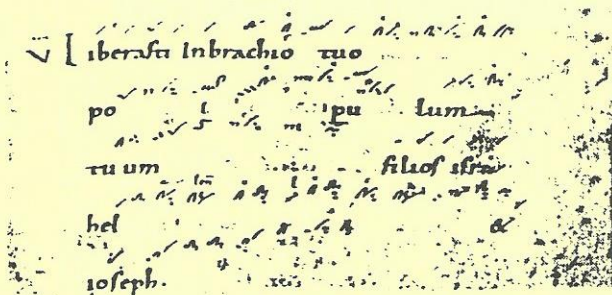 V̈ Liberasti Inbrachio tuo
po pu lum
tu um filios isra
hel &
ioseph.